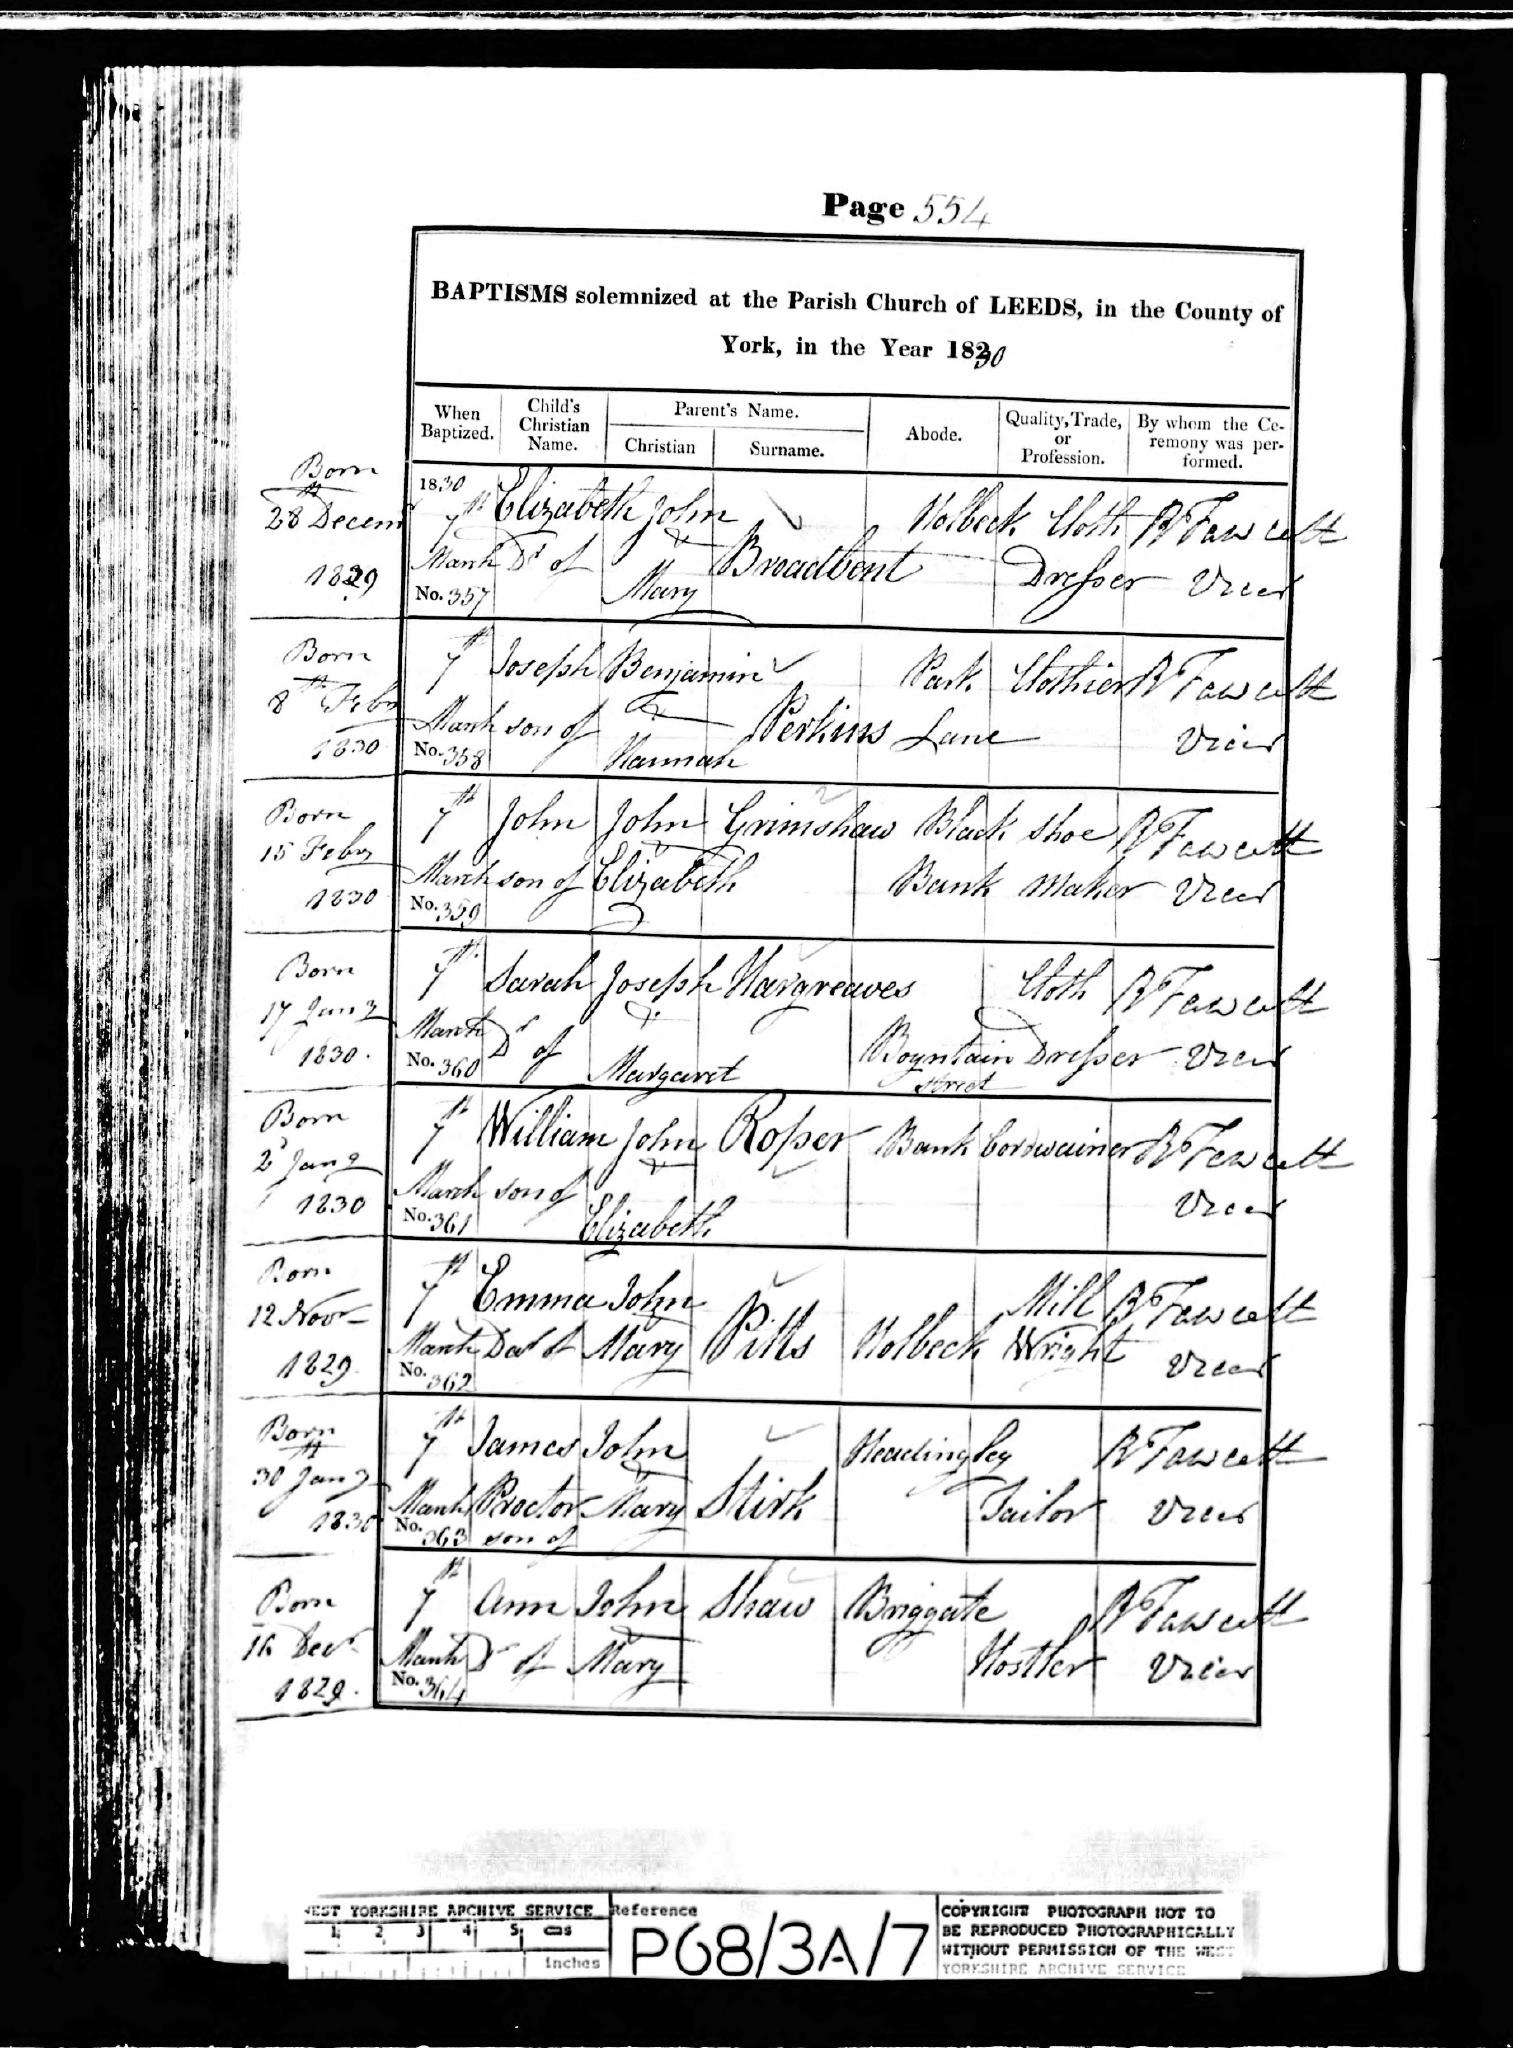 Page 554
BAPTISMS solemnized at the Parish Church of LEEDS, in the County of
York, in the Year 1830
When Baptized.
Child's Christian Name.
Parent's Name.
Christian
Surname.
Abode.
Quality, Trade, or Profession.
By whom the Ceremony was performed.
Born
28th Decemr
1829
1830
7th
March
No. 357
Elizabeth
Dr of
John
&
Mary
Broadbent
Holbeck
Cloth
Dresser
R Fawcett
Vicar
Born
8th Feby
1830
7th
March
No. 358
Joseph
son of
Benjamin
&
Hannah
Perkins
Park
Lane
Clothier
R Fawcett
Vicar
Born
15 Feby
1830
7th
March
No. 359
John
son of
John
&
Elizabeth
Grimshaw
Black
Bank
Shoe
Maker
R Fawcett
Vicar
Born
17 Jany
1830.
7th
March
No. 360
Sarah
Dr of
Joseph
&
Margaret
Hargreaves
Boyntain
Street
Cloth
Dresser
R Fawcett
Vicar
Born
2d Jany
1830
7th
March
No. 361
William
son of
John
&
Elizabeth
Roper
Bank
Cordwainer
R Fawcett
Vicar
Born
12 Novr
1829
7th
March
No. 362
Emma
Dar of
John
&
Mary
Pitts
Holbeck
Mill
Wright
R Fawcett
Vicar
Born
30th Jany
1830
7th
March
No. 363
James
Proctor
son of
John
&
Mary
Stirk
Headingley
Tailor
R Fawcett
Vicar
Born
16 Decr
1829.
7th
March
No. 364
Ann
Dr of
John
&
Mary
Shaw
Briggate
Hostler
R Fawcett
Vicar
WEST YORKSHIRE ARCHIVE SERVICE
1 2 3 4 5 cms
inches
Reference
P68/3A/7
COPYRIGHT PHOTOGRAPH NOT TO
BE REPRODUCED PHOTOGRAPHICALLY
WITHOUT PERMISSION OF THE WEST
YORKSHIRE ARCHIVE SERVICE